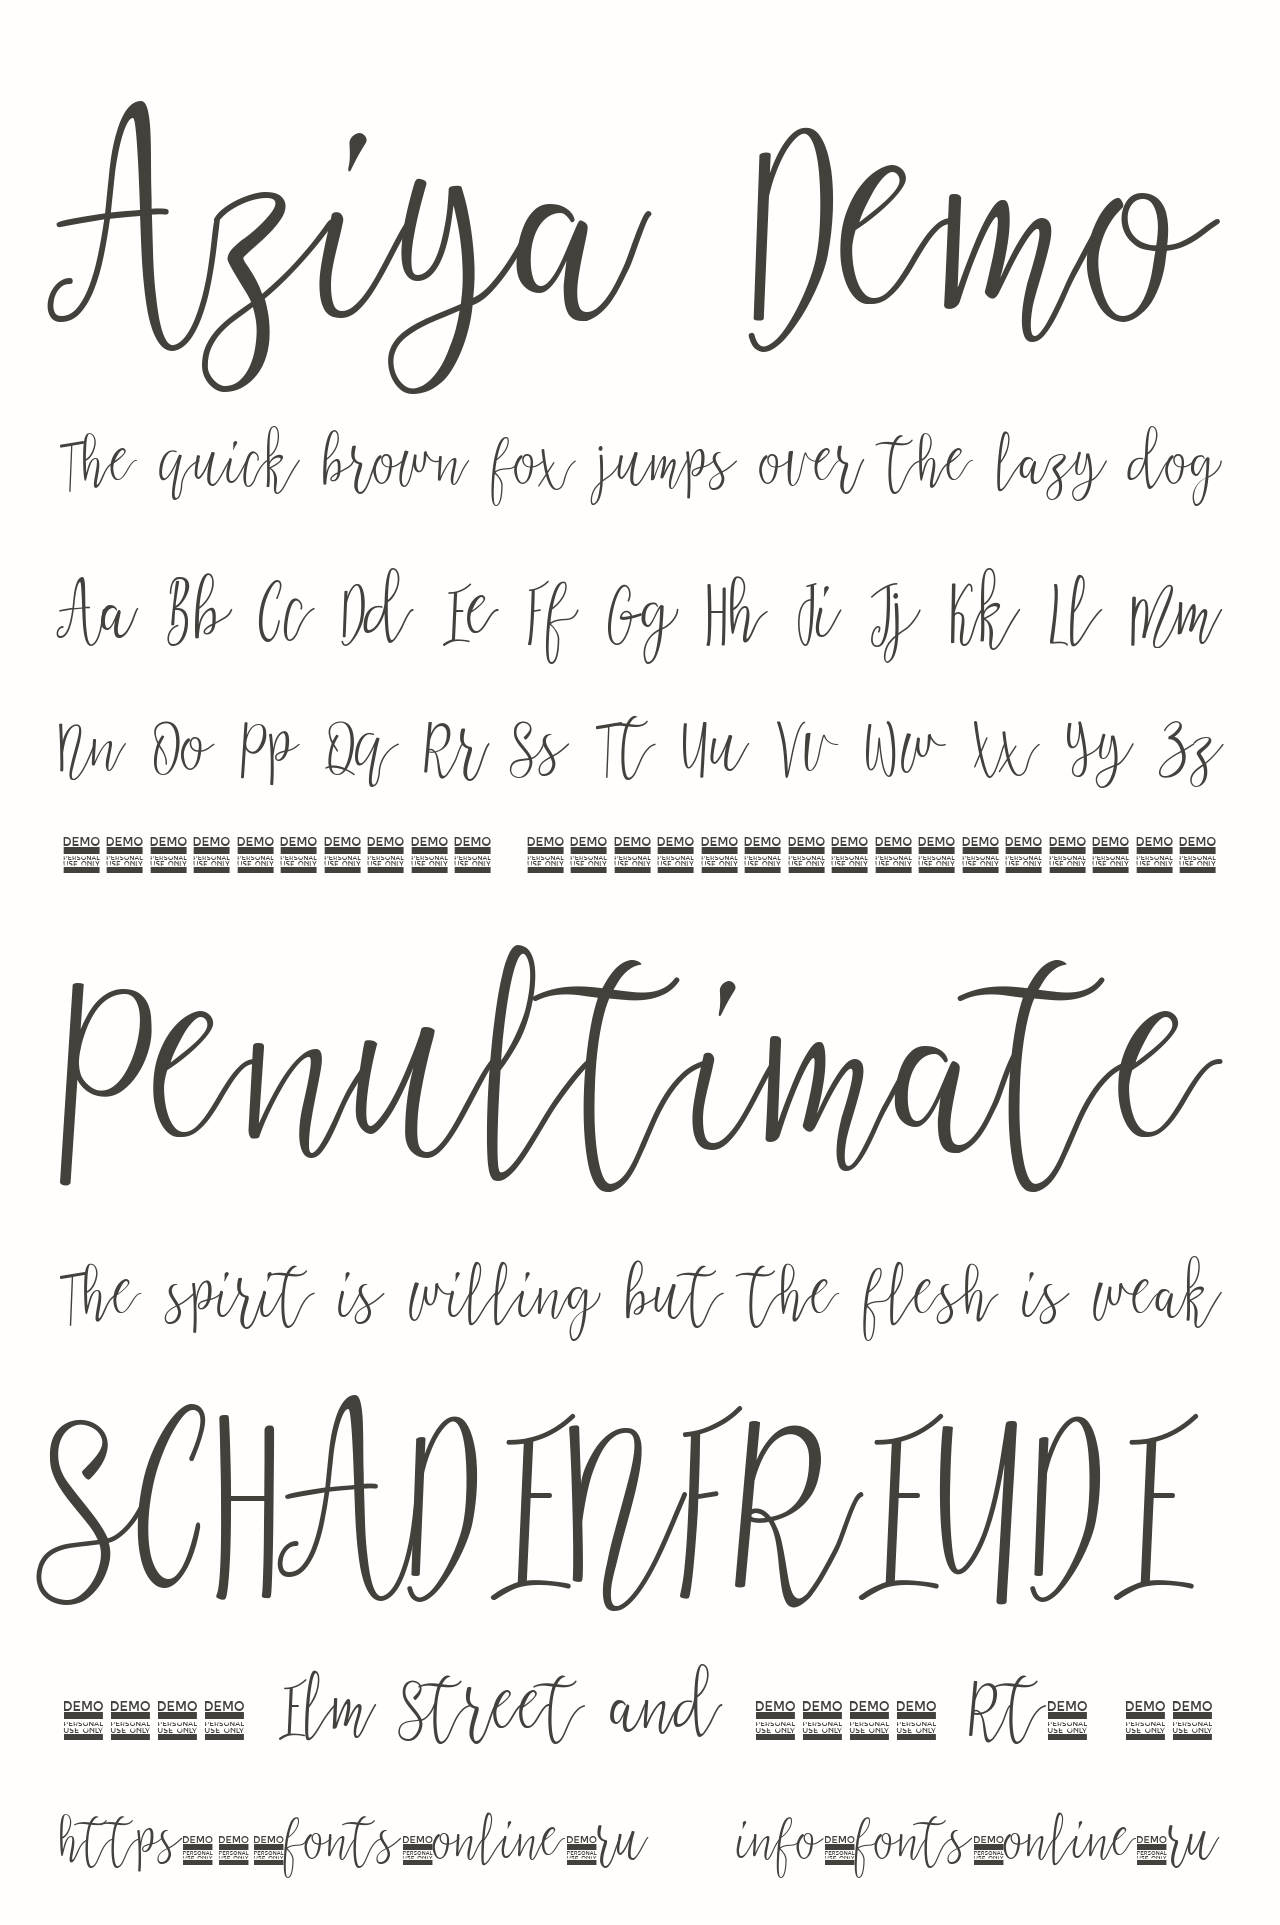 Aziya Demo
The quick brown fox jumps over the lazy dog
Aa Bb Cc Dd Ee Ff Gg Hh Ii Jj Kk Ll Mm
Nn Oo Pp Qq Rr Ss Tt Uu Vv Ww Xx Yy Zz
DEMO DEMO DEMO DEMO DEMO DEMO DEMO DEMO DEMO DEMO DEMO DEMO DEMO DEMO DEMO DEMO DEMO DEMO DEMO DEMO DEMO DEMO DEMO DEMO DEMO DEMO
PERSONAL PERSONAL PERSONAL PERSONAL PERSONAL PERSONAL PERSONAL PERSONAL PERSONAL PERSONAL PERSONAL PERSONAL PERSONAL PERSONAL PERSONAL PERSONAL PERSONAL PERSONAL PERSONAL PERSONAL PERSONAL PERSONAL PERSONAL PERSONAL PERSONAL PERSONAL
USE ONLY USE ONLY USE ONLY USE ONLY USE ONLY USE ONLY USE ONLY USE ONLY USE ONLY USE ONLY USE ONLY USE ONLY USE ONLY USE ONLY USE ONLY USE ONLY USE ONLY USE ONLY USE ONLY USE ONLY USE ONLY USE ONLY USE ONLY USE ONLY USE ONLY USE ONLY
Penultimate
The spirit is willing but the flesh is weak
SCHADENFREUDE
DEMO PERSONAL USE ONLY DEMO PERSONAL USE ONLY DEMO PERSONAL USE ONLY DEMO PERSONAL USE ONLY Elm Street and DEMO PERSONAL USE ONLY DEMO PERSONAL USE ONLY DEMO PERSONAL USE ONLY DEMO PERSONAL USE ONLY Rt DEMO PERSONAL USE ONLY DEMO PERSONAL USE ONLY DEMO PERSONAL USE ONLY
https DEMO PERSONAL USE ONLY DEMO PERSONAL USE ONLY DEMO PERSONAL USE ONLY fonts DEMO PERSONAL USE ONLY online DEMO PERSONAL USE ONLY ru info DEMO PERSONAL USE ONLY fonts DEMO PERSONAL USE ONLY online DEMO PERSONAL USE ONLY ru